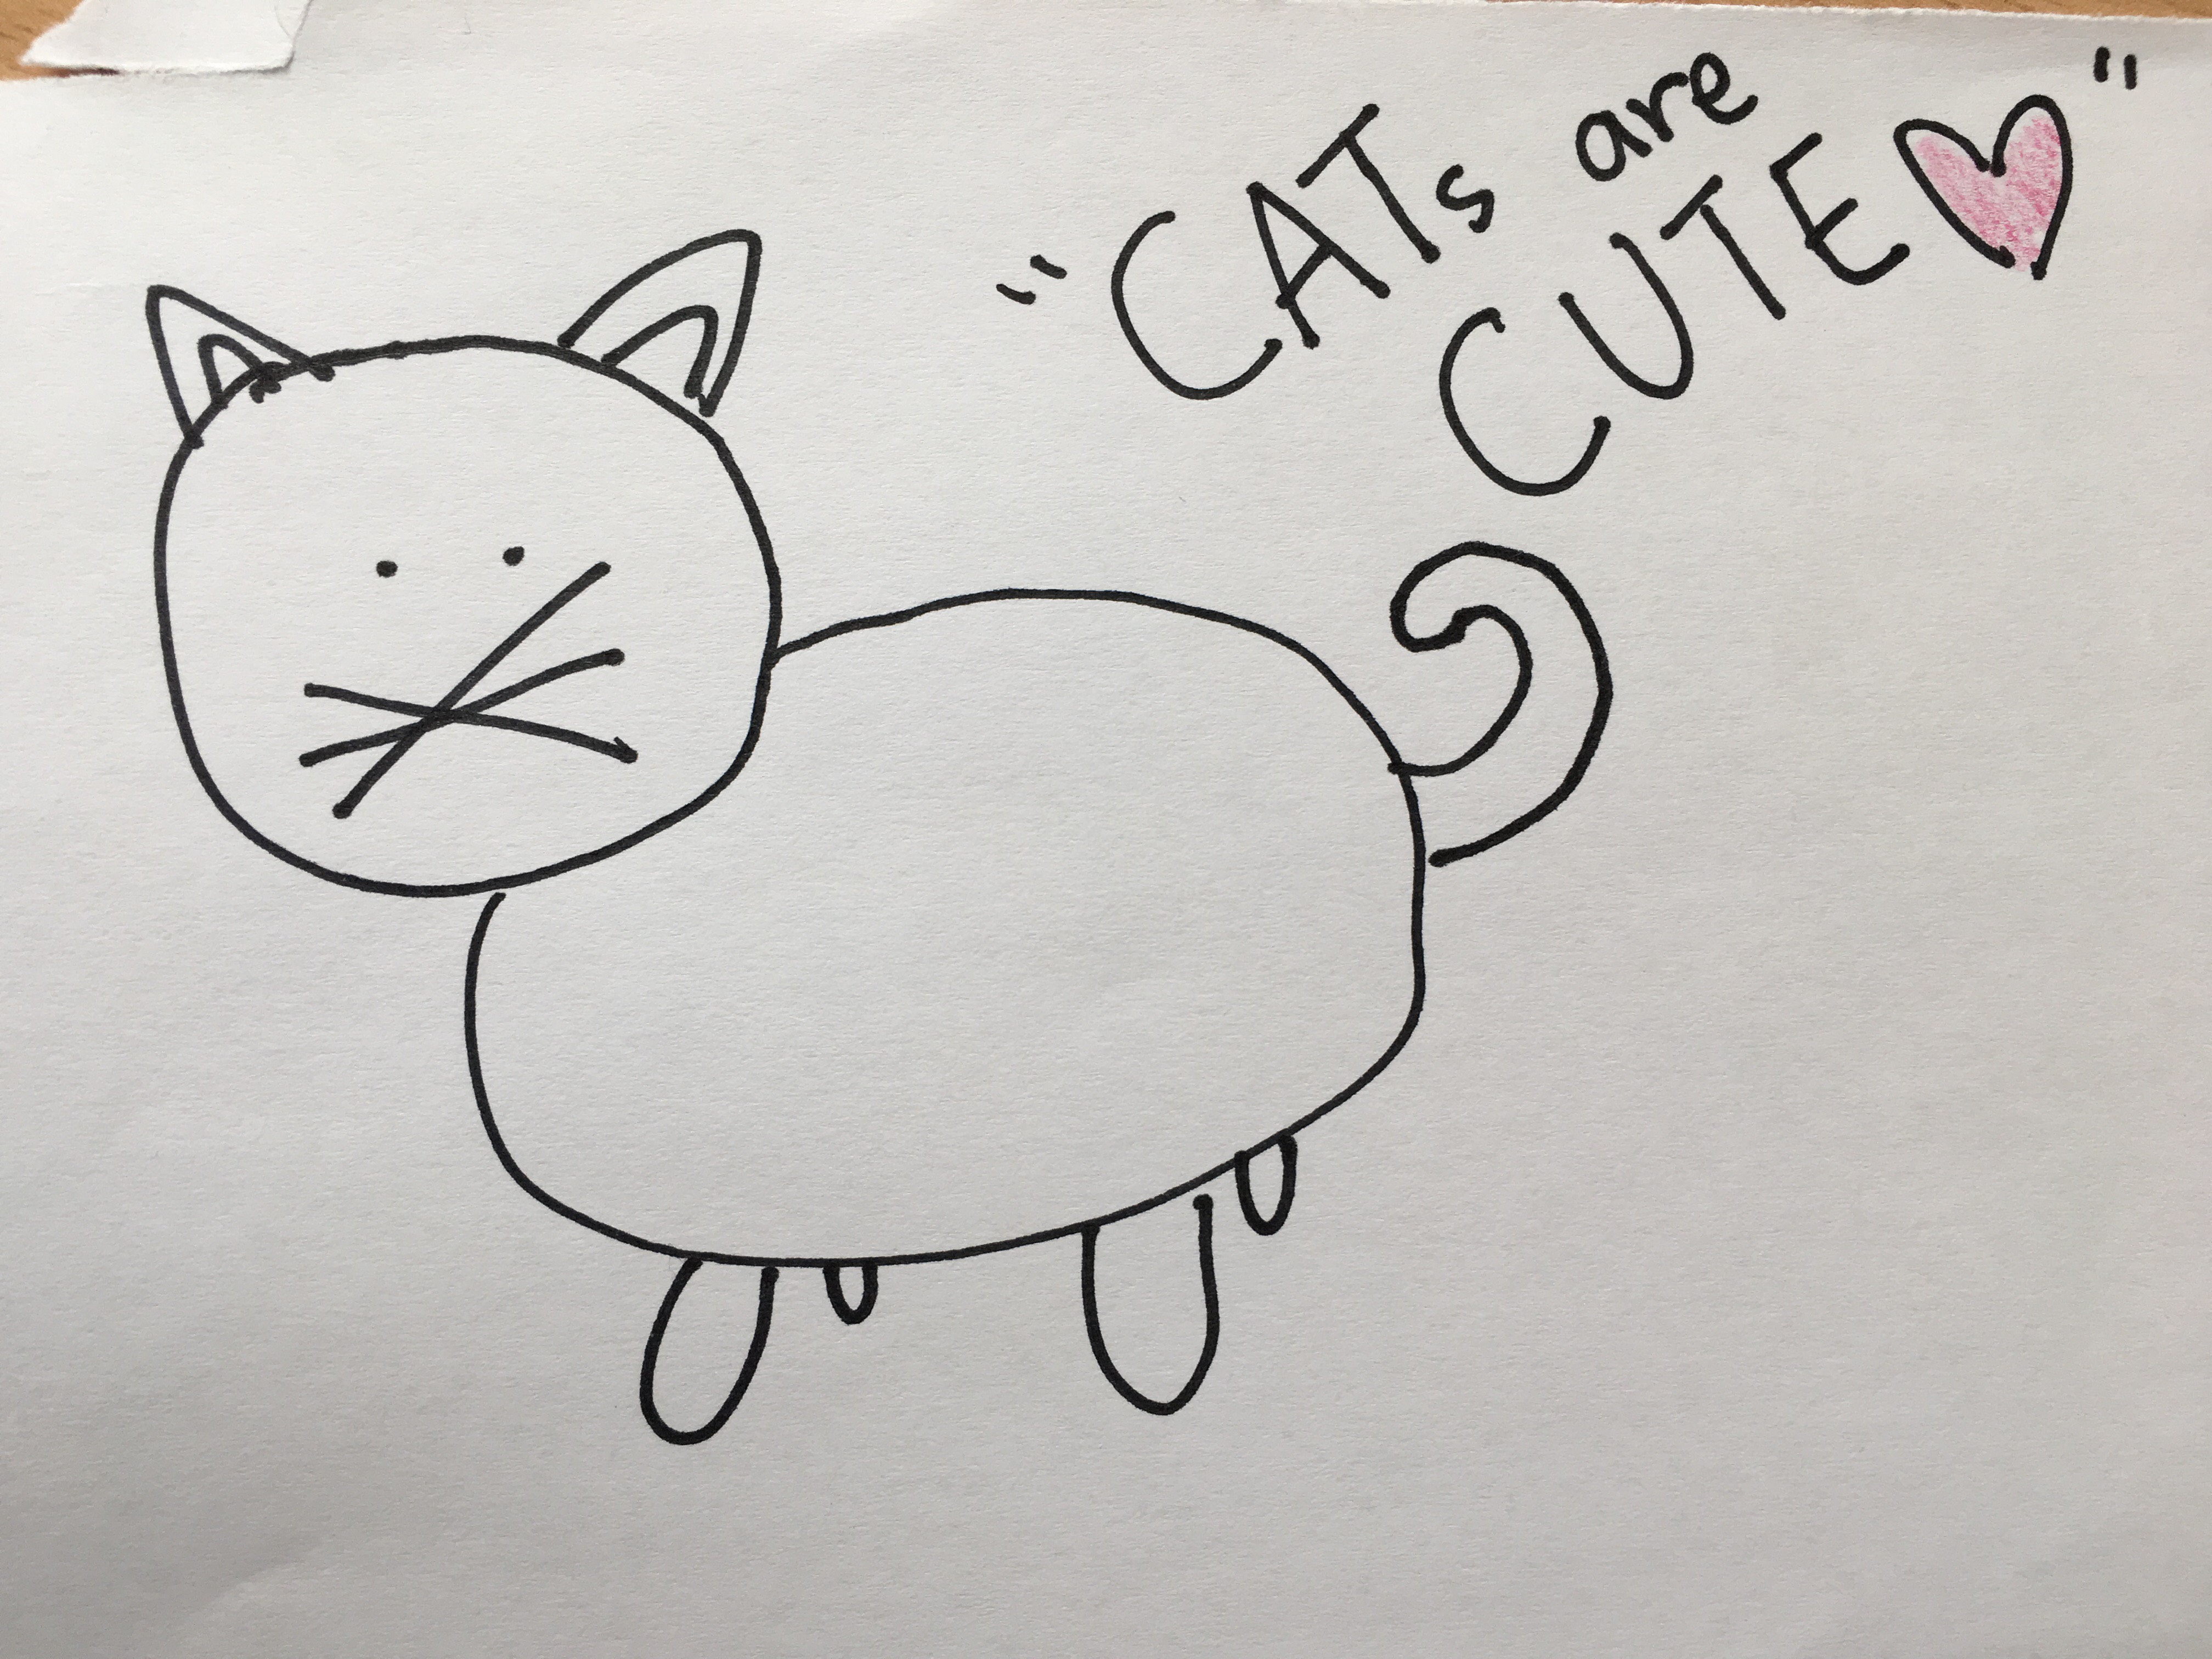 "CATs are
CUTE ♡"